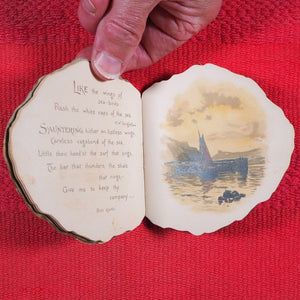 LIKE the wings of
sea-birds
Flash the white caps of the sea.
SAUNTERING hither on listless wings,
Careless vagabond of the sea,
Little thou heed'st the surf that sings,
The bar that thunders, the shale
that rings,—
Give me to keep thy
company.
Bret Harte.